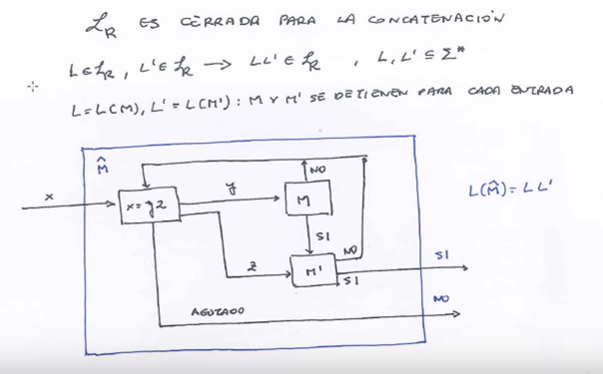 ℒR ES CERRADA PARA LA CONCATENACIÓN
L∈ℒR, L'∈ℒR → LL'∈ℒR , L, L' ⊆ Σ*
L=L(M), L'=L(M') : M Y M' SE DETIENEN PARA CADA ENTRADA
M̂
NO
x
x=yz
y
M
L(M̂)=LL'
SI
NO
z
M'
SI
SI
AGOTADO
NO